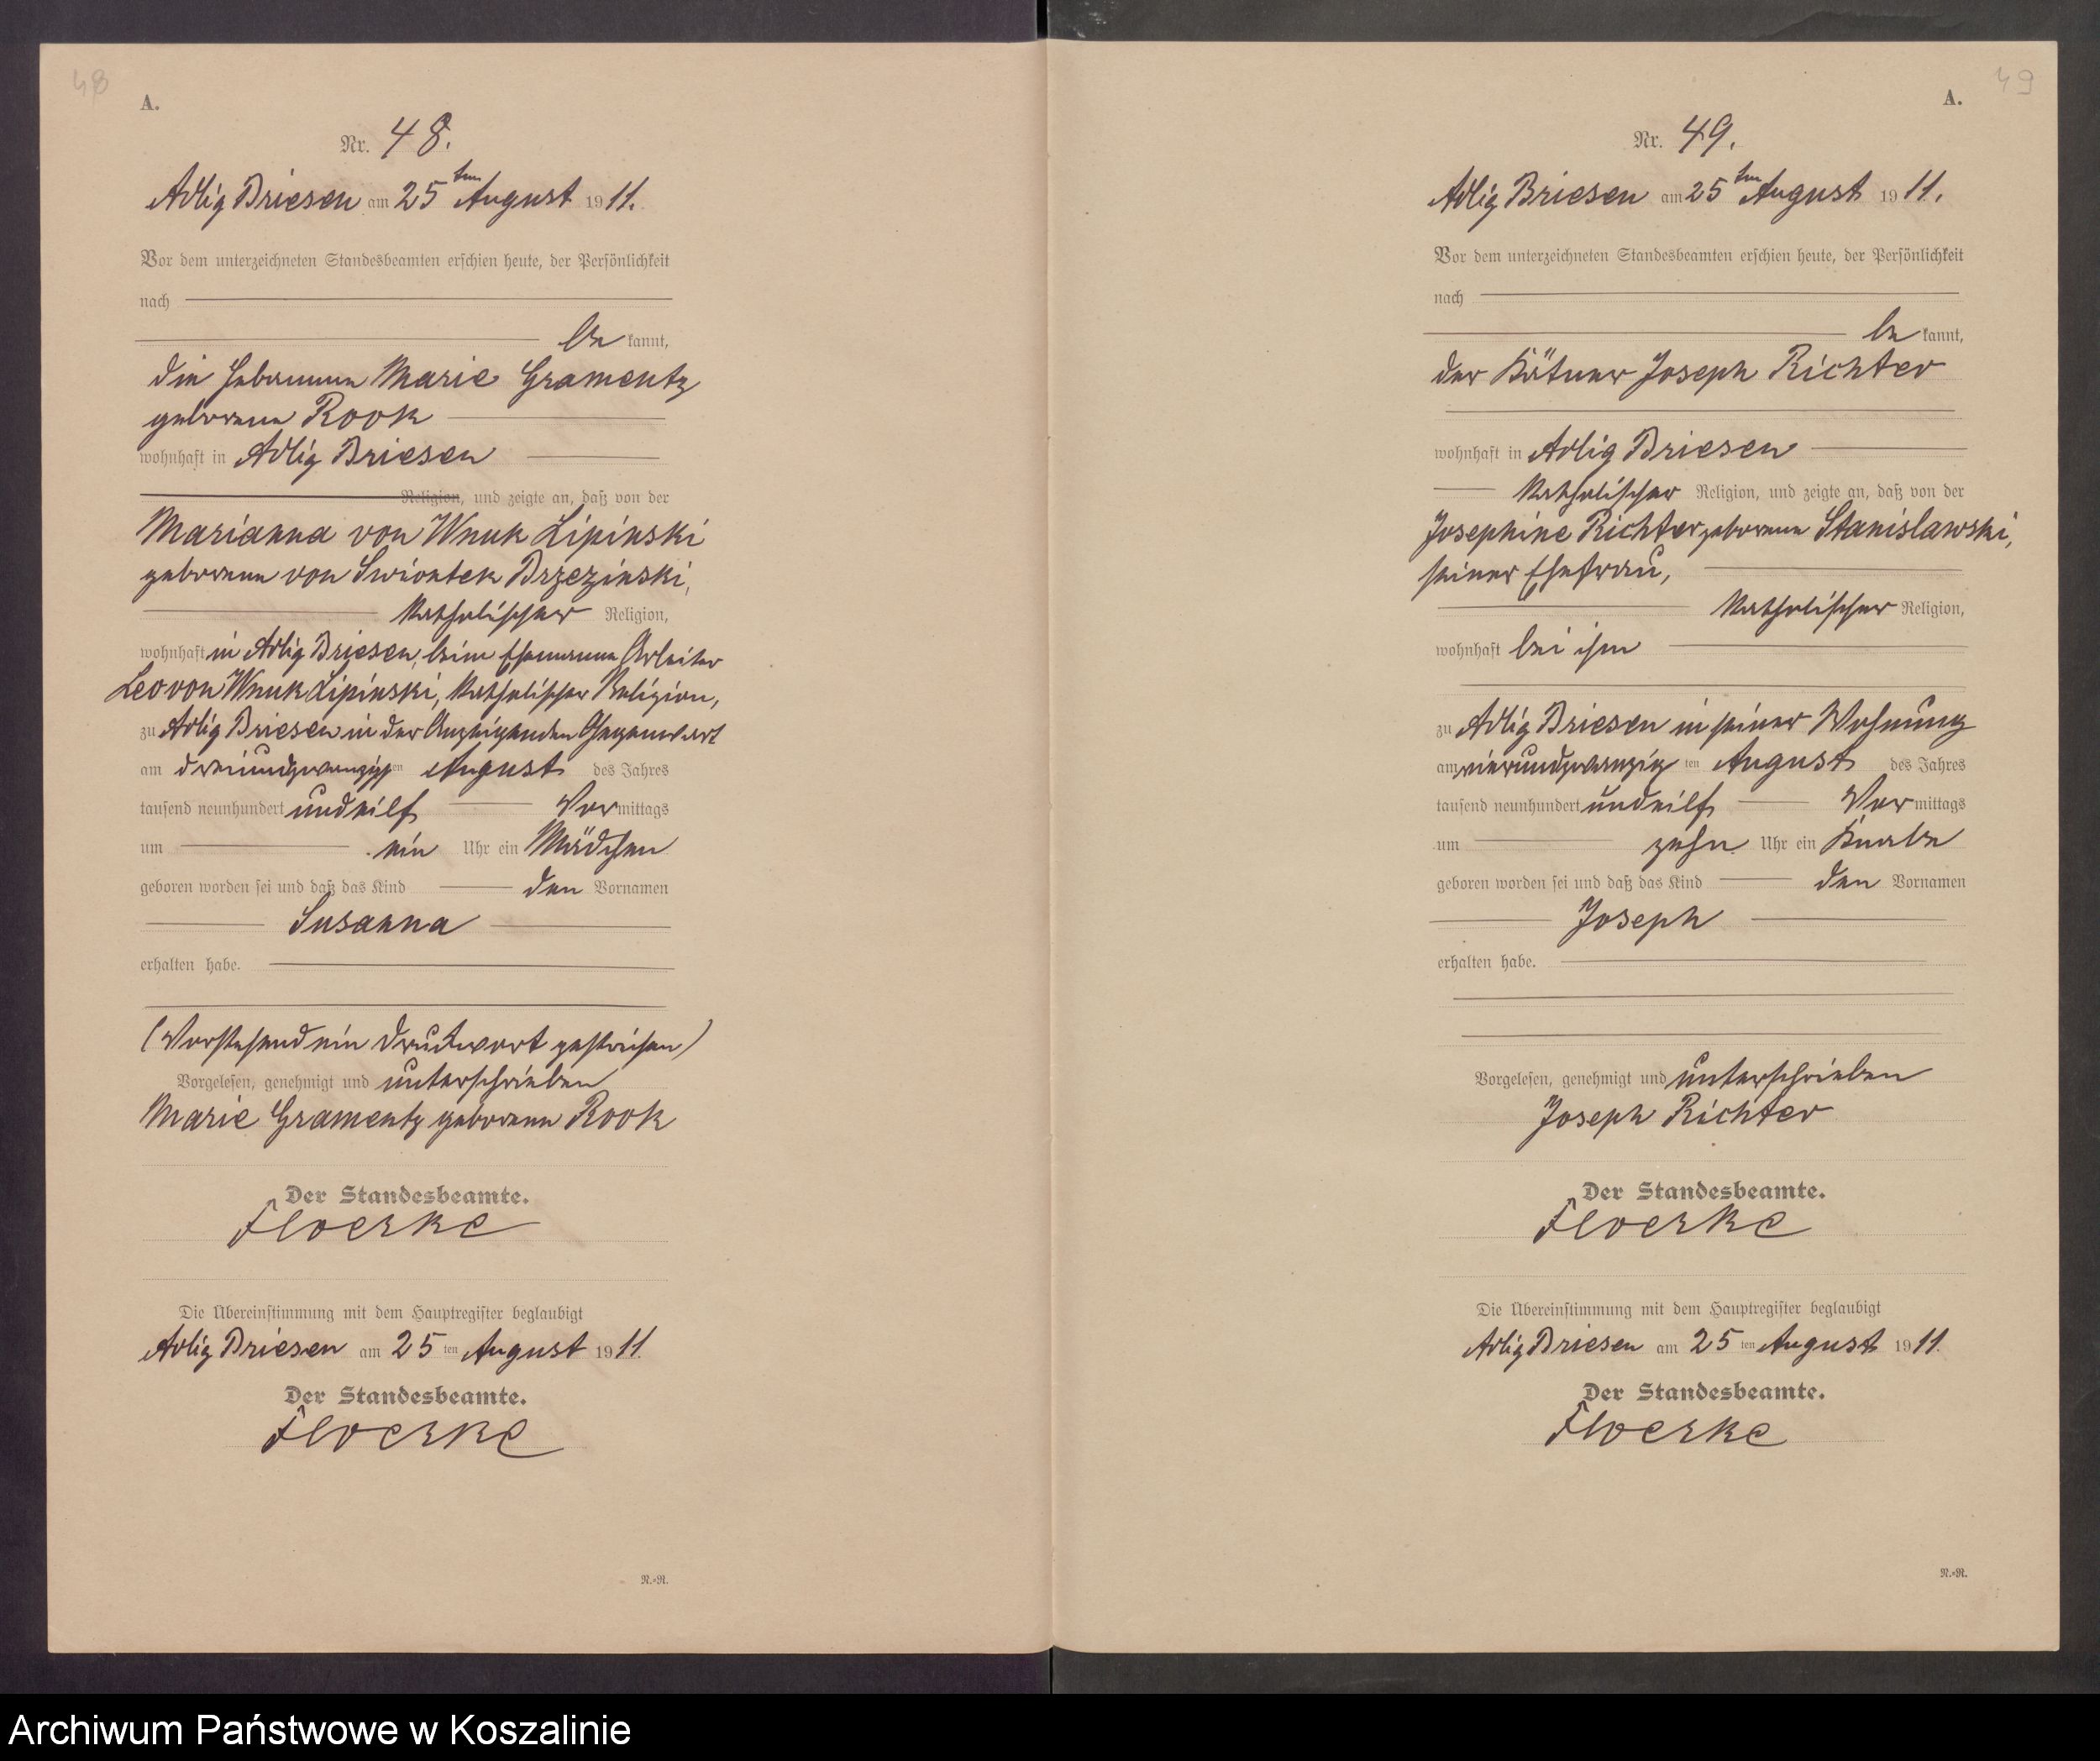 48
A.
Nr. 48.
Adlig Briesen am 25 ten August 1911.
Vor dem unterzeichneten Standesbeamten erschien heute, der Persönlichkeit
nach
be kannt,
die Hebamme Marie Gramentz
geborene Rook
wohnhaft in Adlig Briesen
Religion, und zeigte an, daß von der
Marianna von Wnuk Lipinski
geborenen von Swiontek Brzezinski,
katholischer Religion,
wohnhaft in Adlig Briesen, beim Ehemanne Arbeiter
Leo von Wnuk Lipinski, katholischer Religion,
zu Adlig Briesen in der Anzeigenden Gegenwart
am dreiundzwanzigsten August des Jahres
tausend neunhundert undeilf Vormittags
um ein Uhr ein Mädchen
geboren worden sei und daß das Kind den Vornamen
Susanna
erhalten habe.
(Vorstehend ein Druckwort gestrichen)
Vorgelesen, genehmigt und unterschrieben
Marie Gramentz geborene Rook
Der Standesbeamte.
Floerke
Die Übereinstimmung mit dem Hauptregister beglaubigt
Adlig Briesen am 25 ten August 1911.
Der Standesbeamte.
Floerke
N.=R.
49
A.
Nr. 49.
Adlig Briesen am 25 ten August 1911.
Vor dem unterzeichneten Standesbeamten erschien heute, der Persönlichkeit
nach
be kannt,
der Kätner Joseph Richter
wohnhaft in Adlig Briesen
katholischer Religion, und zeigte an, daß von der
Josephine Richter geborenen Stanislawski,
seiner Ehefrau,
katholischer Religion,
wohnhaft bei ihm
zu Adlig Briesen in seiner Wohnung
am vierundzwanzig ten August des Jahres
tausend neunhundert undeilf Vormittags
um zehn Uhr ein Knabe
geboren worden sei und daß das Kind den Vornamen
Joseph
erhalten habe.
Vorgelesen, genehmigt und unterschrieben
Joseph Richter
Der Standesbeamte.
Floerke
Die Übereinstimmung mit dem Hauptregister beglaubigt
Adlig Briesen am 25 ten August 1911.
Der Standesbeamte.
Floerke
N.=R.
Archiwum Państwowe w Koszalinie